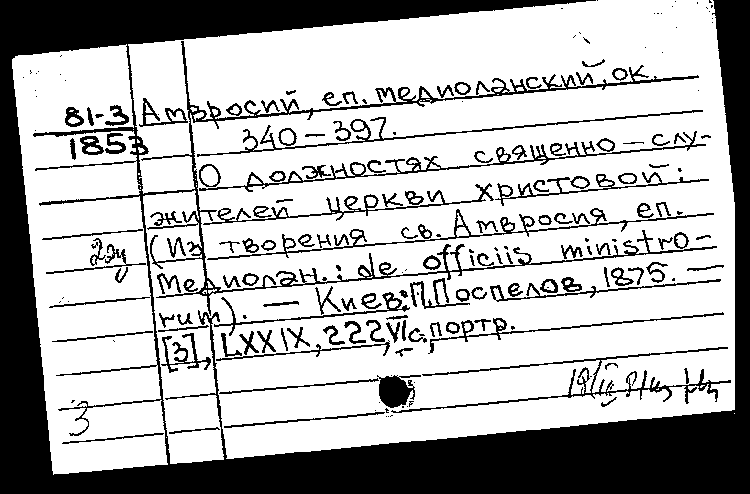 81-3 Амвросий, еп. медиоланский, ок.
1853 340-397.
О должностях священно-слу-
жителей церкви христовой:
(Из творения св. Амвросия, еп.
Медиолан.: de officiis ministro-
rum). — Киев: П.Поспелов, 1875. —
[3], LXXIX, 222, VI с., портр.
3